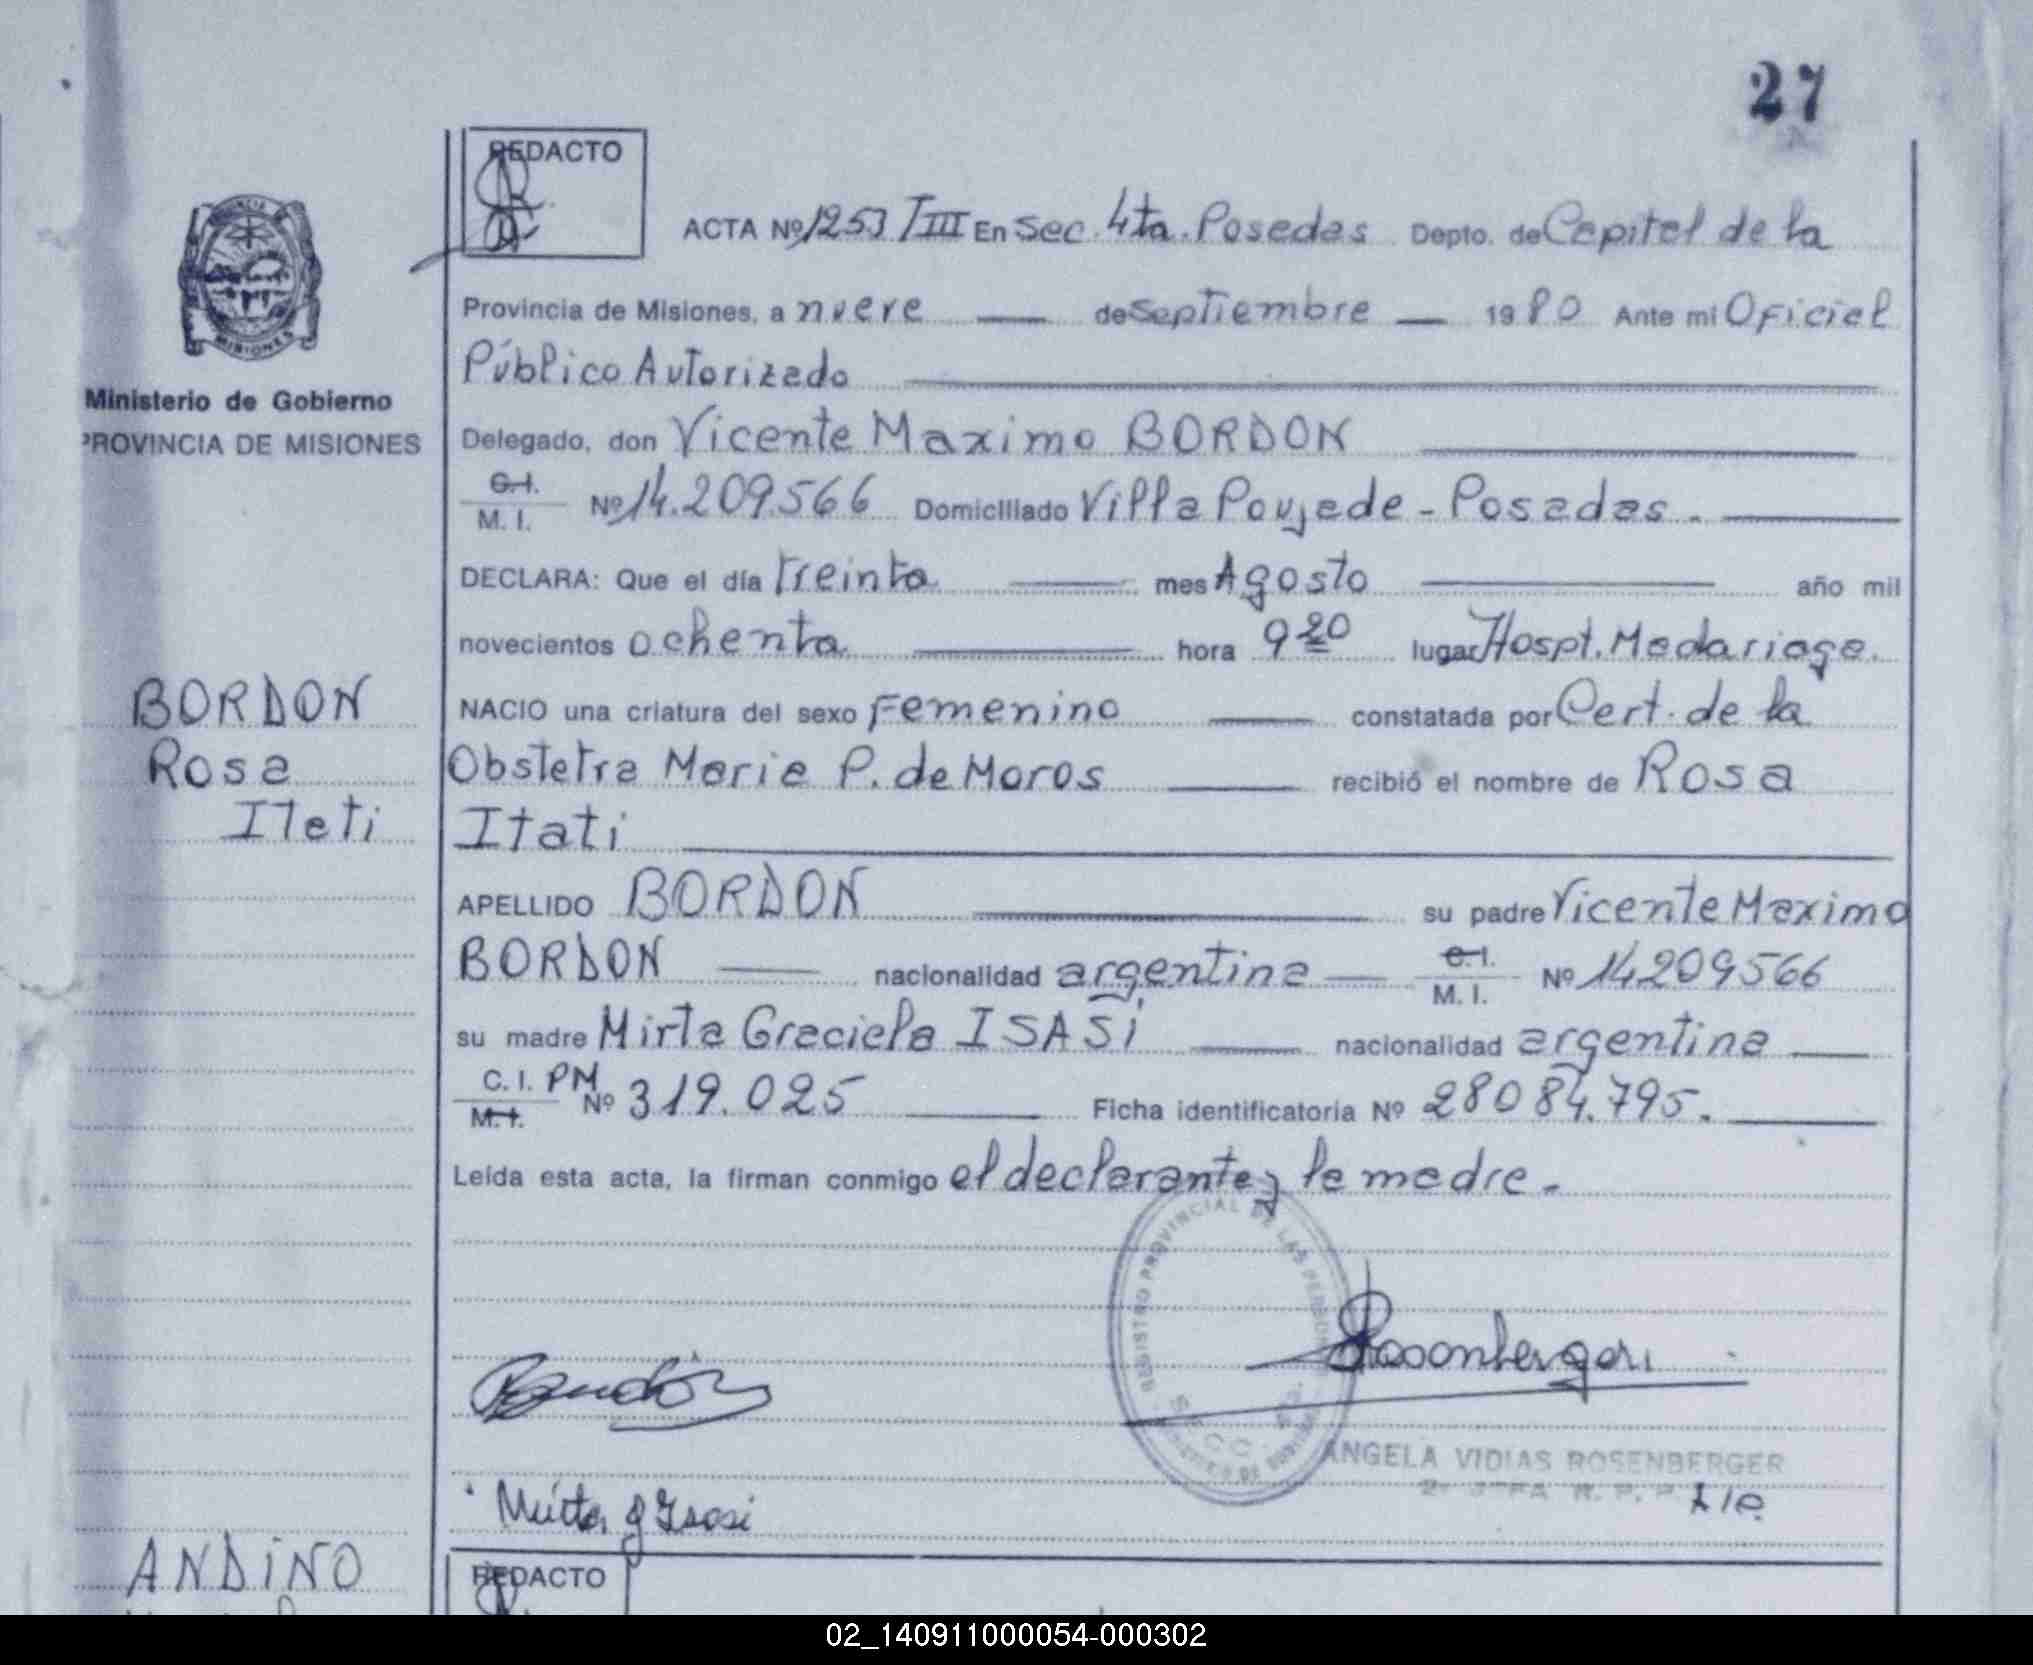 27
REDACTO
ACTA Nº 1253 TIII En Sec. 4ta. Posadas Depto. de Capital de la
Provincia de Misiones, a nueve de Septiembre 1980 Ante mi Oficial
Público Autorizado
Ministerio de Gobierno
PROVINCIA DE MISIONES
MISIONES
Delegado, don Vicente Maximo BORDON
C.I. M. I. Nº 14.209.566 Domiciliado Villa Poujade - Posadas.
DECLARA: Que el día treinta mes Agosto año mil
novecientos ochenta hora 9 20 lugar Hospt. Madariaga.
BORDON
Rosa
Itati
NACIO una criatura del sexo Femenino constatada por Cert. de la
Obstetra Maria P. de Moros recibió el nombre de Rosa
Itati
APELLIDO BORDON su padre Vicente Maximo
BORDON nacionalidad argentina C.I. M. I. Nº 14209566
su madre Mirta Graciela ISASi nacionalidad argentina
C. I. M.I. PM Nº 319.025 Ficha identificatoria Nº 28084.795.
Leída esta acta, la firman conmigo el declarante y la madre.
REGISTRO PROVINCIAL DE LAS PERSONAS
SECC. 4ta.
Rosenberger
ANGELA VIDIAS ROSENBERGER
Mirta G Isasi
ANDiNO
REDACTO
02_140911000054-000302